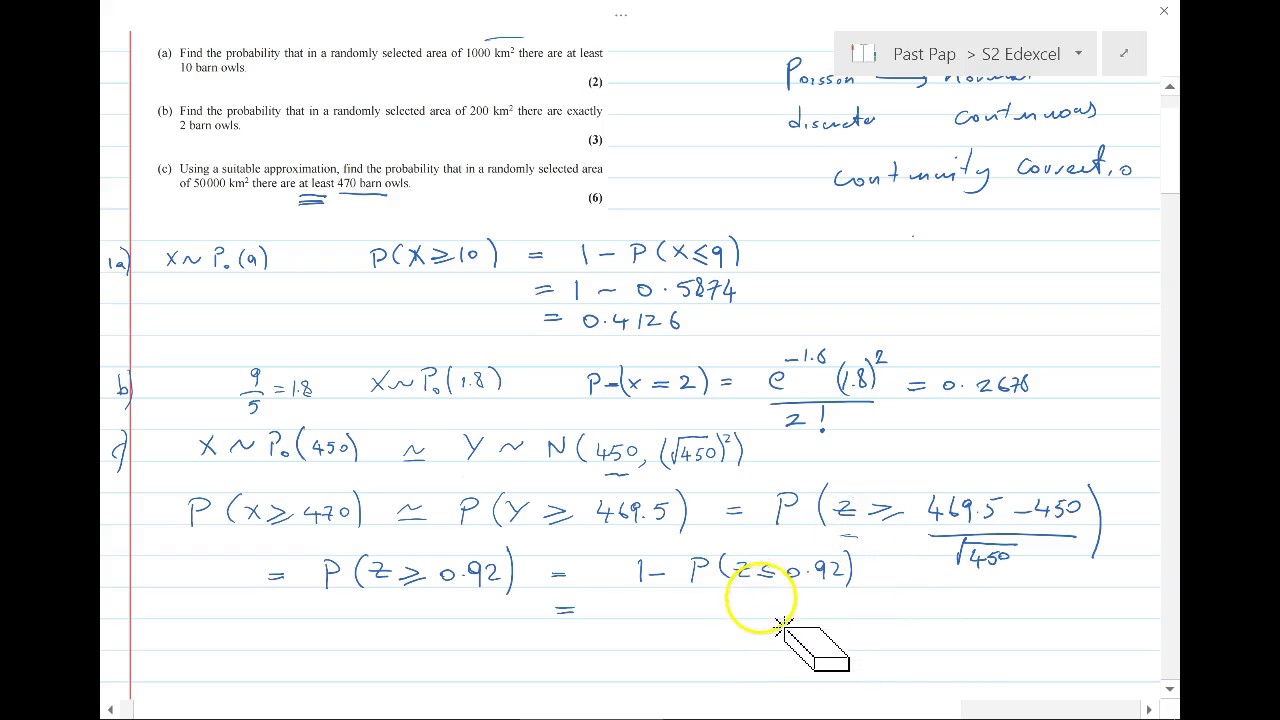 ...
Past Pap > S2 Edexcel
(a) Find the probability that in a randomly selected area of 1000 km² there are at least
10 barn owls.
(2)
(b) Find the probability that in a randomly selected area of 200 km² there are exactly
2 barn owls.
(3)
(c) Using a suitable approximation, find the probability that in a randomly selected area
of 50 000 km² there are at least 470 barn owls.
(6)
Poisson →
discrete continuous
continuity
1a) X ~ P₀(9) P(X ≥ 10) = 1 - P(X ≤ 9)
= 1 - 0.5874
= 0.4126
b) 9/5 = 1.8 X ~ P₀(1.8) P(x = 2) = e^-1.8 (1.8)² / 2! = 0.2678
c) X ~ P₀(450) ≃ Y ~ N(450, (√450)²)
P(X ≥ 470) ≃ P(Y ≥ 469.5) = P(Z ≥ 469.5 - 450 / √450)
= P(Z ≥ 0.92) = 1 - P(Z ≤ 0.92)
=